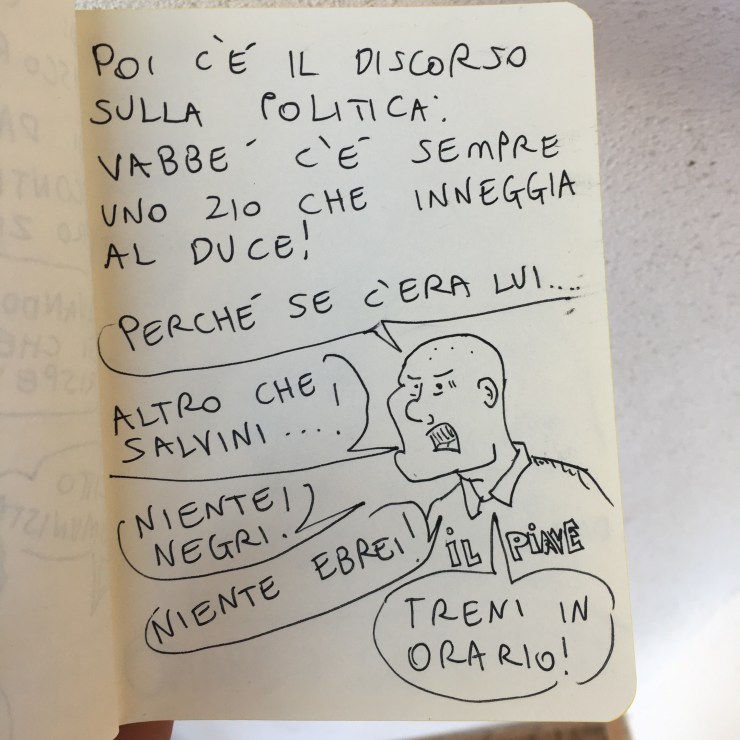 POI C'É IL DISCORSO
SULLA POLITICA:
VABBÉ C'É SEMPRE
UNO ZIO CHE INNEGGIA
AL DUCE!
PERCHÉ SE C'ERA LUI....
ALTRO CHE
SALVINI....!
NIENTE!
NEGRI.
NIENTE EBREI!
IL PIAVE
TRENI IN
ORARIO!